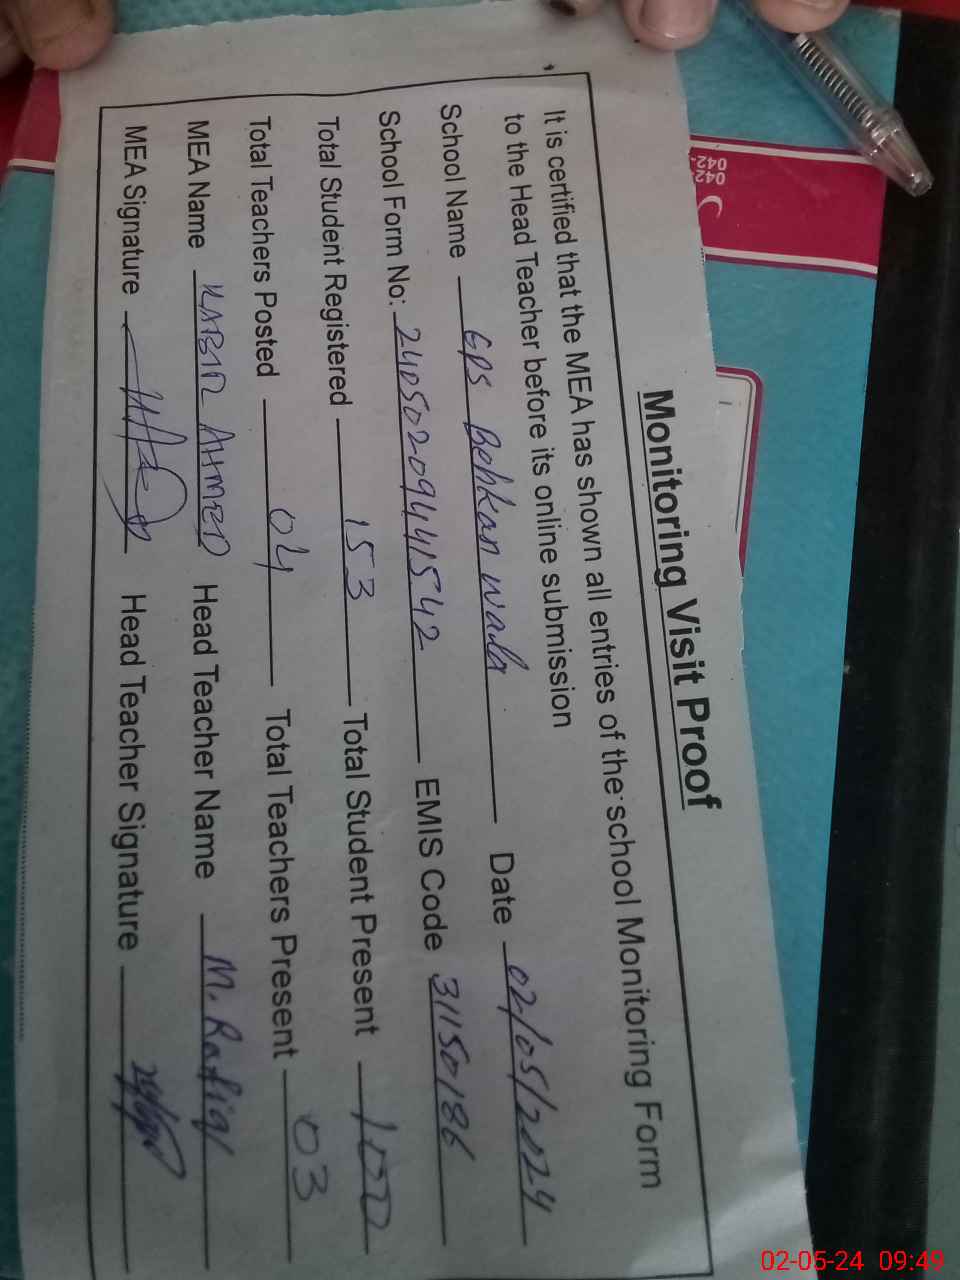 Monitoring Visit Proof
It is certified that the MEA has shown all entries of the school Monitoring Form
to the Head Teacher before its online submission
School Name GPS Bohkan wala Date 02/05/2024
School Form No: 24050209441542 EMIS Code 31150186
Total Student Registered 153 Total Student Present 102
Total Teachers Posted 04 Total Teachers Present 03
MEA Name KABIR AHMED Head Teacher Name M. Rafiq
MEA Signature Head Teacher Signature
042-
042-
02-05-24 09:49